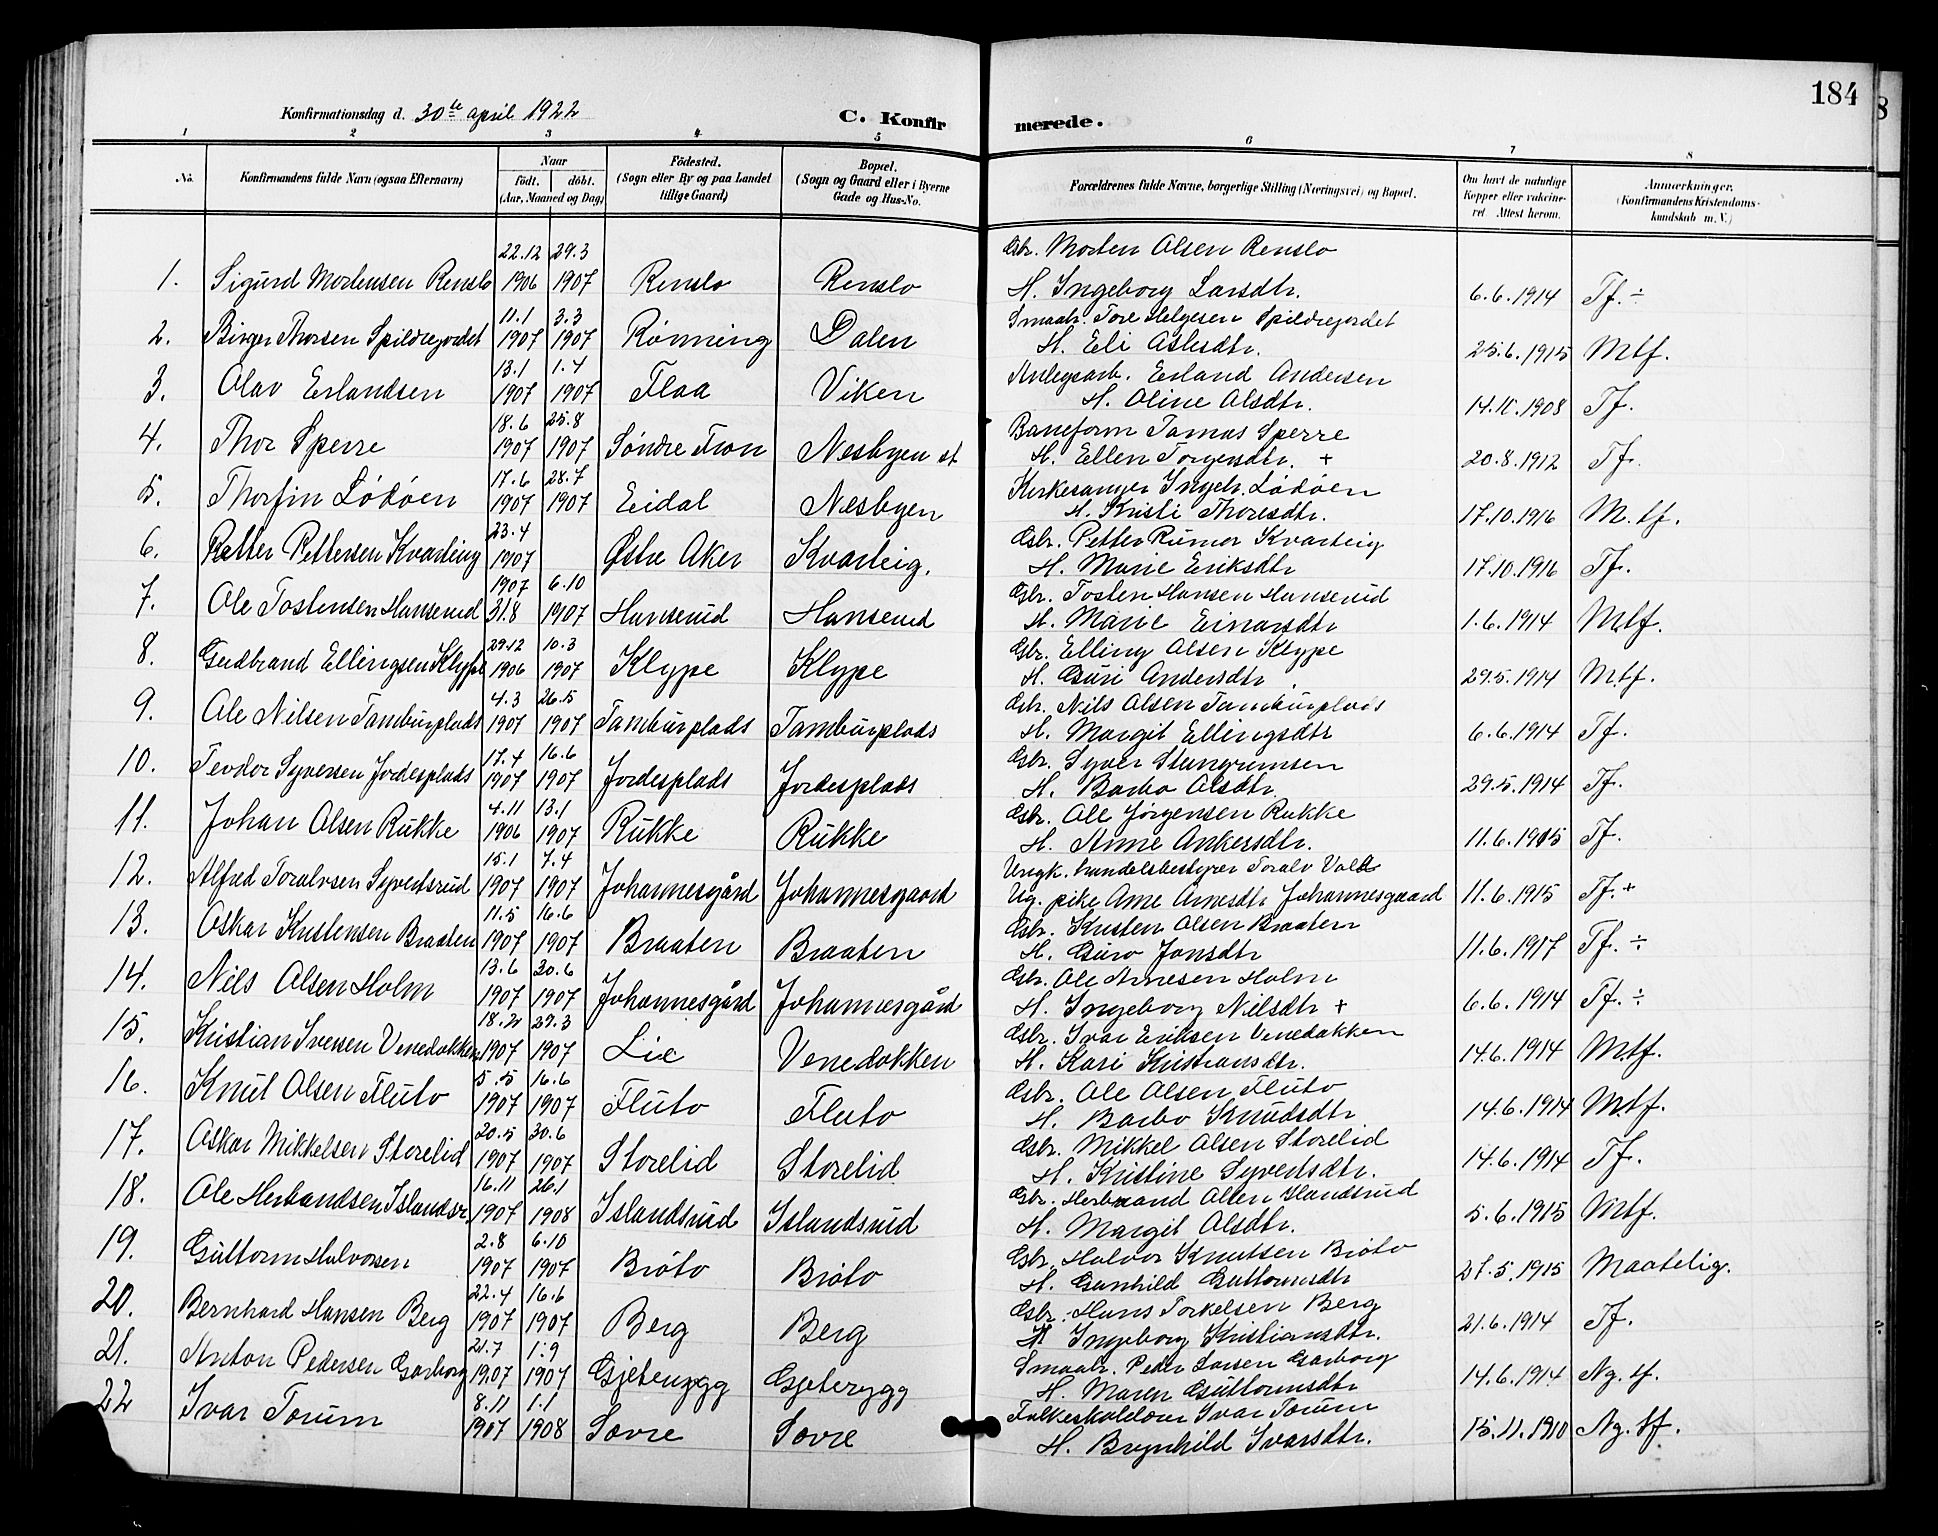 184
Konfirmationsdag d. 30te april 1922
C. Konfirmerede.
1 2 3 4 5 6 7 8
No. Konfirmandens fulde Navn (ogsaa Efternavn) Naar født. døbt. (Aar, Maaned og Dag) Födested. (Sogn eller By og paa Landet tillige Gaard) Bopæl. (Sogn og Gaard eller i Byerne Gade og Hus-No. Forældrenes fulde Navne, borgerlige Stilling (Næringsvei) og Bopæl. Om havt de naturlige Kopper eller vakcineret Attest herom. Anmærkninger. (Konfirmandens Kristendomskundskab m.V.)
22.12 29.3 Gbr. Morten Olsen Renslo
1. Sigurd Mortensen Renslo 1906 1907 Renslo Renslo H. Ingeborg Larsdtr. 6.6.1914 Tf. ÷
11.1 3.3 Smaabr. Tore Helgesen Spildrejordet
2. Birger Thorsen Spildrejordet 1907 1907 Rønning Dalen H. Eli Aslesdtr. 25.6.1915 Mtf.
13.1 1.4 Anlegsarb. Erland Andersen
3. Olav Erlandsen 1907 1907 Flaa Viken H. Oline Olsdtr. 14.10.1908 Tf.
18.6 25.8 Baneform Tomas Sperre
4. Thor Sperre 1907 1907 Søndre Fron Nesbyen st H. Ellen Torgersdtr. + 20.8.1912 Tf.
17.6 28.7 Kirkesanger Ingebr. Lødøen
5. Thorfin Lødøen 1907 1907 Eidal Nesbyen H. Kristi Thoresdtr. 17.10.1916 M.tf.
23.4 Gbr. Petter Kvarteig
6. Petter Pettersen Kvarteig 1907 Østre Aker Kvarteig. H. Marie Eriksdtr 17.10.1916 Tf.
1907 6.10 Gbr. Tosten Hansen Hanserud
7. Ole Tostensen Hanserud 31.8 1907 Hanserud Hanserud H. Marie Einarsdtr 1.6.1914 Mtf.
29.12 10.3 Gbr. Elling Olsen Klype
8. Gudbrand Ellingsen Klype 1906 1907 Klype Klype H. Guri Andersdtr 29.5.1914 Mtf.
4.3 26.5 Gbr. Nils Olsen Tamburplads
9. Ole Nilsen Tamburplads 1907 1907 Tamburplads Tamburplads H. Margit Ellingsdtr 6.6.1914 Tf.
17.4 16.6 Gbr. Syver Stengrimsen
10. Teodor Syversen Jordesplads 1907 1907 Jordesplads Jordesplads H. Barbo Olsdtr. 29.5.1914 Tf.
4.11 13.1 Gbr. Ole Jørgensen Rukke
11. Johan Olsen Rukke 1906 1907 Rukke Rukke H. Anne Ankersdtr. 11.6.1915 Tf.
15.1 7.4 Ungk. handelsbestyrer Toralv Vold
12. Alfred Toralvsen Syvertsrud 1907 1907 Johannesgård Johannesgaard Ug. pike Ane Arnesdtr Johannesgaard 11.6.1915 Tf. +
11.5 16.6 Gbr. Kristen Olsen Braaten
13. Oskar Kristensen Braaten 1907 1907 Braaten Braaten H. Guro Jonsdtr 11.6.1917 Tf. ÷
13.6 30.6 Gbr. Ole Arnesen Holm
14. Nils Olsen Holm 1907 1907 Johannesgård Johannesgård H. Ingeborg Nilsdtr + 6.6.1914 Tf. ÷
18.2 29.3 Gbr. Ivar Eriksen Venedokken
15. Kristian Iversen Venedokken 1907 1907 Lie Venedokken H. Kari Kristiansdtr. 14.6.1914 Mtf.
5.5 16.6 Gbr. Ole Olsen Fluto
16. Knut Olsen Fluto 1907 1907 Fluto Fluto H. Barbo Knudsdtr 14.6.1914 Mtf.
20.5 30.6 Gbr. Mikkel Olsen Storelid
17. Oskar Mikkelsen Storelid 1907 1907 Storelid Storelid H. Kristine Syvertsdtr. 14.6.1914 Tf.
16.11 26.1 Gbr. Herbrand Olsen Islandsrud
18. Ole Herbrandsen Islandsr. 1907 1908 Islandsrud Islandsrud H. Margit Olsdtr. 5.6.1915 Mtf.
2.8 6.10 Gbr. Halvor Knutsen Brøto
19. Guttorm Halvorsen 1907 1907 Brøto Brøto H. Gunhild Guttormsdtr 27.5.1915 Maatelig.
22.4 16.6 Gbr. Hans Torkelsen Berg
20. Bernhard Hansen Berg 1907 1907 Berg Berg H. Ingeborg Kristiansdtr. 21.6.1914 Tf.
21.7 1.9 Smaabr. Peder Larsen Garborg
21. Anton Pedersen Garborg 1907 1907 Gjeterygg Gjeterygg H. Maren Guttormsdtr 14.6.1914 Ng. tf.
8.11 1.1 Folkeskolelærer Ivar Torum
22 Ivar Torum 1907 1908 Sovre Sovre H. Brynhild Ivarsdtr. 15.11.1910 Ng. tf.